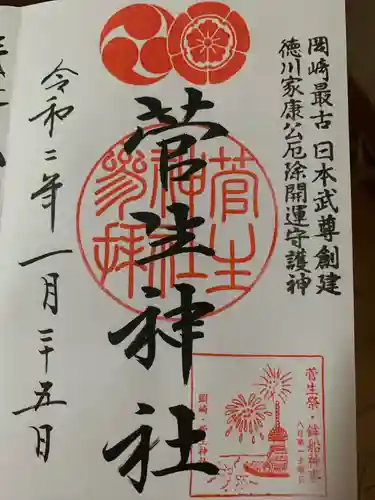 岡崎最古 日本武尊創建
徳川家康公厄除開運守護神
菅生神社
菅生神社
参拝
令和二年一月二十五日
菅生祭・鉾船神事
八月第一土曜日
岡崎・菅生神社